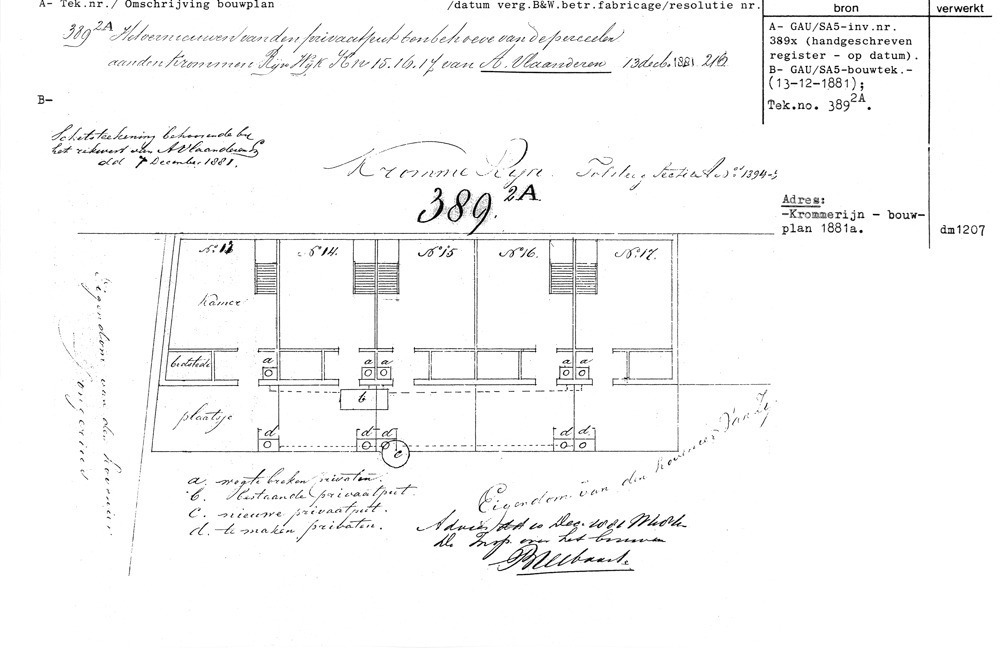 A- Tek.nr./ Omschrijving bouwplan /datum verg.B&W.betr.fabricage/resolutie nr.
bron
verwerkt
389 2A Het vernieuwen van den privaatput ten behoeve van de perceelen
aan den Krommen Rijn Wijk K no 15.16.17 van A. Vlaanderen 13 decb. 1881. 216
A- GAU/SA5-inv.nr.
389x (handgeschreven
register - op datum).
B- GAU/SA5-bouwtek.-
(13-12-1881);
Tek.no. 389 2A.
B-
Schetsteekening behoorende bij
het rekwest van A Vlaanderen
dd 7 December 1881.
Kromme Rijn. Sectie no 1394
389. 2A.
Adres:
-Krommerijn - bouw-
plan 1881a.
dm1207
No 13
No 14.
No 15
No 16.
No 17.
Kamer
bedstede
a
a
a
a
a
b
plaatsje
d
d
d
d
d
c
Eigendom van den hovenier
Eigendom van den hovenier Van
a. weg te breken privaten.
b. bestaande privaatput.
c. nieuwe privaatput.
d. te maken privaten.
Advies dd 10 Dec. 1881
De Insp. over het bouwen